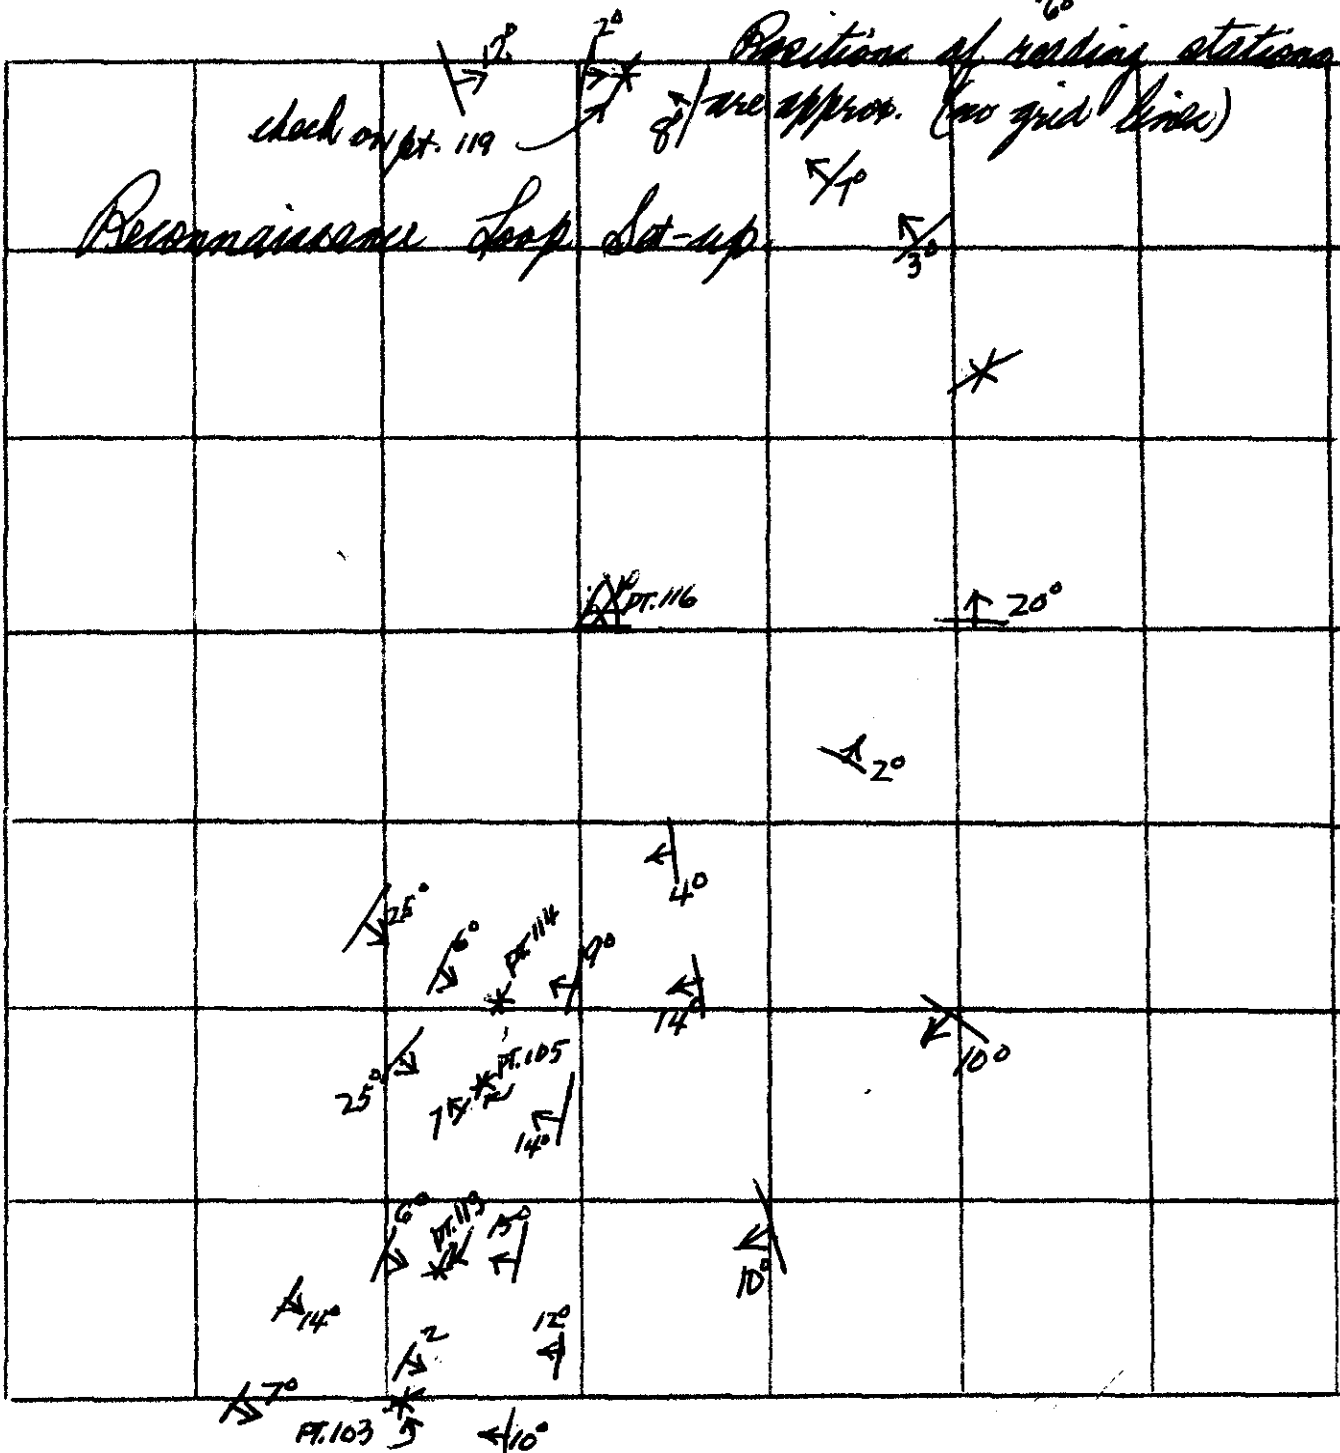 6°
12° 2° Positions of reading stations
8° are approx. (no grid lines)
check on pt. 119
7°
Reconnaissance Loop Set-up
3°
PT.116 20°
2°
4°
25°
6° PT.114 9°
14°
10°
25° PT.105
7
14°
6° PT.113 15°
10°
14°
12°
2
7°
PT.103 10°